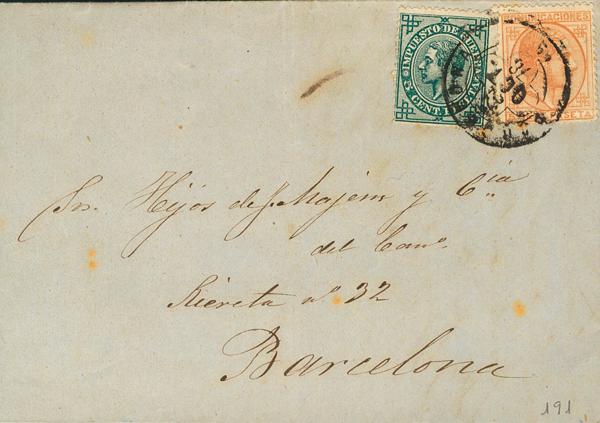 IMPUESTO DE GUERRA
5 CENT. DE PTA.
COMUNICACIONES
PESETA
Srs. Hijos de J. Majem y Cia
del Comº.
Riereta nº 32
Barcelona
191